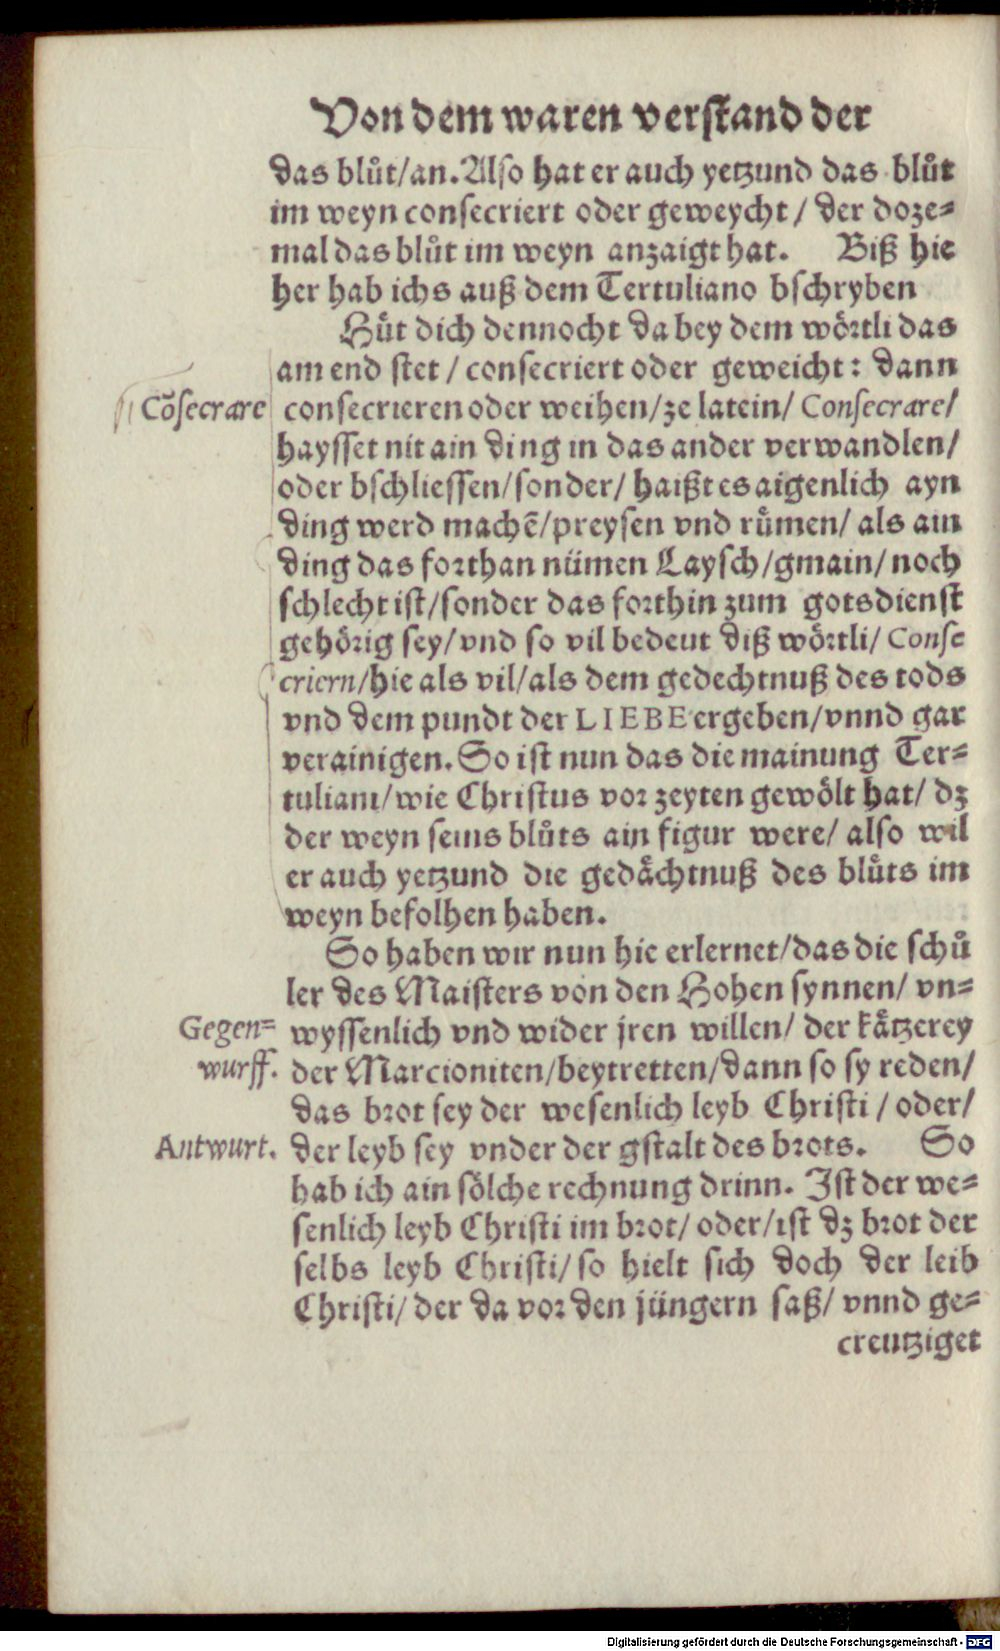 Von dem waren verstand der
das blůt/an. Also hat er auch yetzund das blůt
im weyn consecriert oder geweycht / der doze-
mal das blůt im weyn anzaigt hat. Biß hie
her hab ichs auß dem Tertuliano bschryben
Hůt dich dennocht da bey dem wörtli das
am end stet / consecriert oder geweicht: dann
Cõsecrare
consecrieren oder weihen/ze latein/ Consecrare/
haysset nit ain ding in das ander verwandlen/
oder bschliessen/sonder/ haißt es aigenlich ayn
ding werd machẽ/preysen vnd růmen/ als ain
ding das forthan nümen Laysch/gmain/ noch
schlecht ist/sonder das forthin zum gotsdienst
gehörig sey/vnd so vil bedeut diß wörtli/ Conse
criern/hie als vil/als dem gedechtnuß des tods
vnd dem pundt der LIEBE ergeben/vnnd gar
verainigen. So ist nun das die mainung Ter-
tuliani/wie Christus vor zeyten gewölt hat/ dz
der weyn seins blůts ain figur were/ also wil
er auch yetzund die gedächtnuß des blůts im
weyn befolhen haben.
So haben wir nun hie erlernet/das die schů
ler des Maisters von den Hohen synnen/ vn-
Gegen-
wurff.
wyssenlich vnd wider jren willen/ der kätzerey
der Marcioniten/beytretten/dann so sy reden/
das brot sey der wesenlich leyb Christi / oder/
Antwurt.
der leyb sey vnder der gstalt des brots. So
hab ich ain sölche rechnung drinn. Ist der we-
senlich leyb Christi im brot/ oder/ist dz brot der
selbs leyb Christi/ so hielt sich doch der leib
Christi/ der da vor den jüngern saß/ vnnd ge-
creutziget
Digitalisierung gefördert durch die Deutsche Forschungsgemeinschaft - DFG